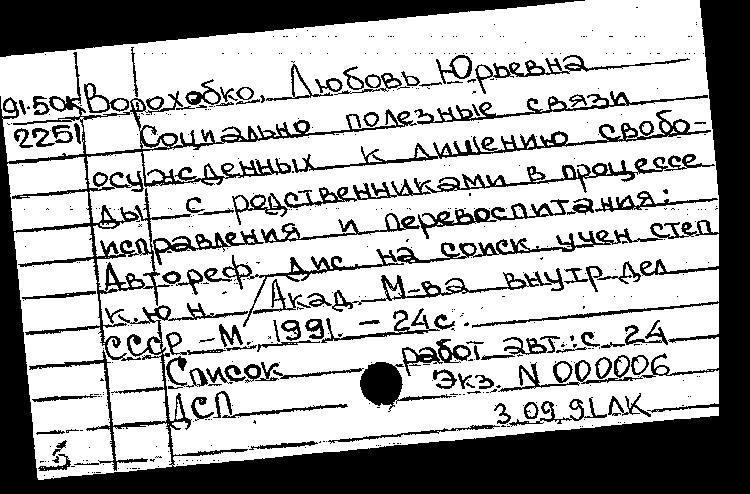 91.50к Ворохобко, Любовь Юрьевна
2251 Социально полезные связи
осужденных к лишению свобо-
ды с родственниками в процессе
исправления и перевоспитания:
Автореф. дис. на соиск. учен степ
к.ю.н. / Акад. М-ва внутр дел
СССР. - М., 1991. - 24с.
Список работ авт.: с. 24
ДСП Экз. N 000006
3.09.91 ЛК
5